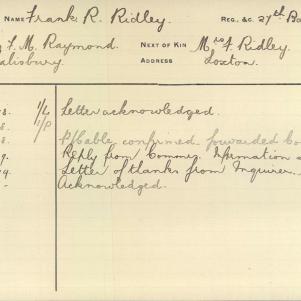 NAME Frank R. Ridley. REG. &C. 27th Ba
F. M. Raymond. NEXT OF KIN Mrs F. Ridley.
alisbury. ADDRESS Loxton.
8. 1/L Letter acknowledged.
8. 1/P
8. P/Cable confirmed forwarded Co
9. Reply from Commrs. Information
9. Letter of thanks from Inquirer.
- Acknowledged.